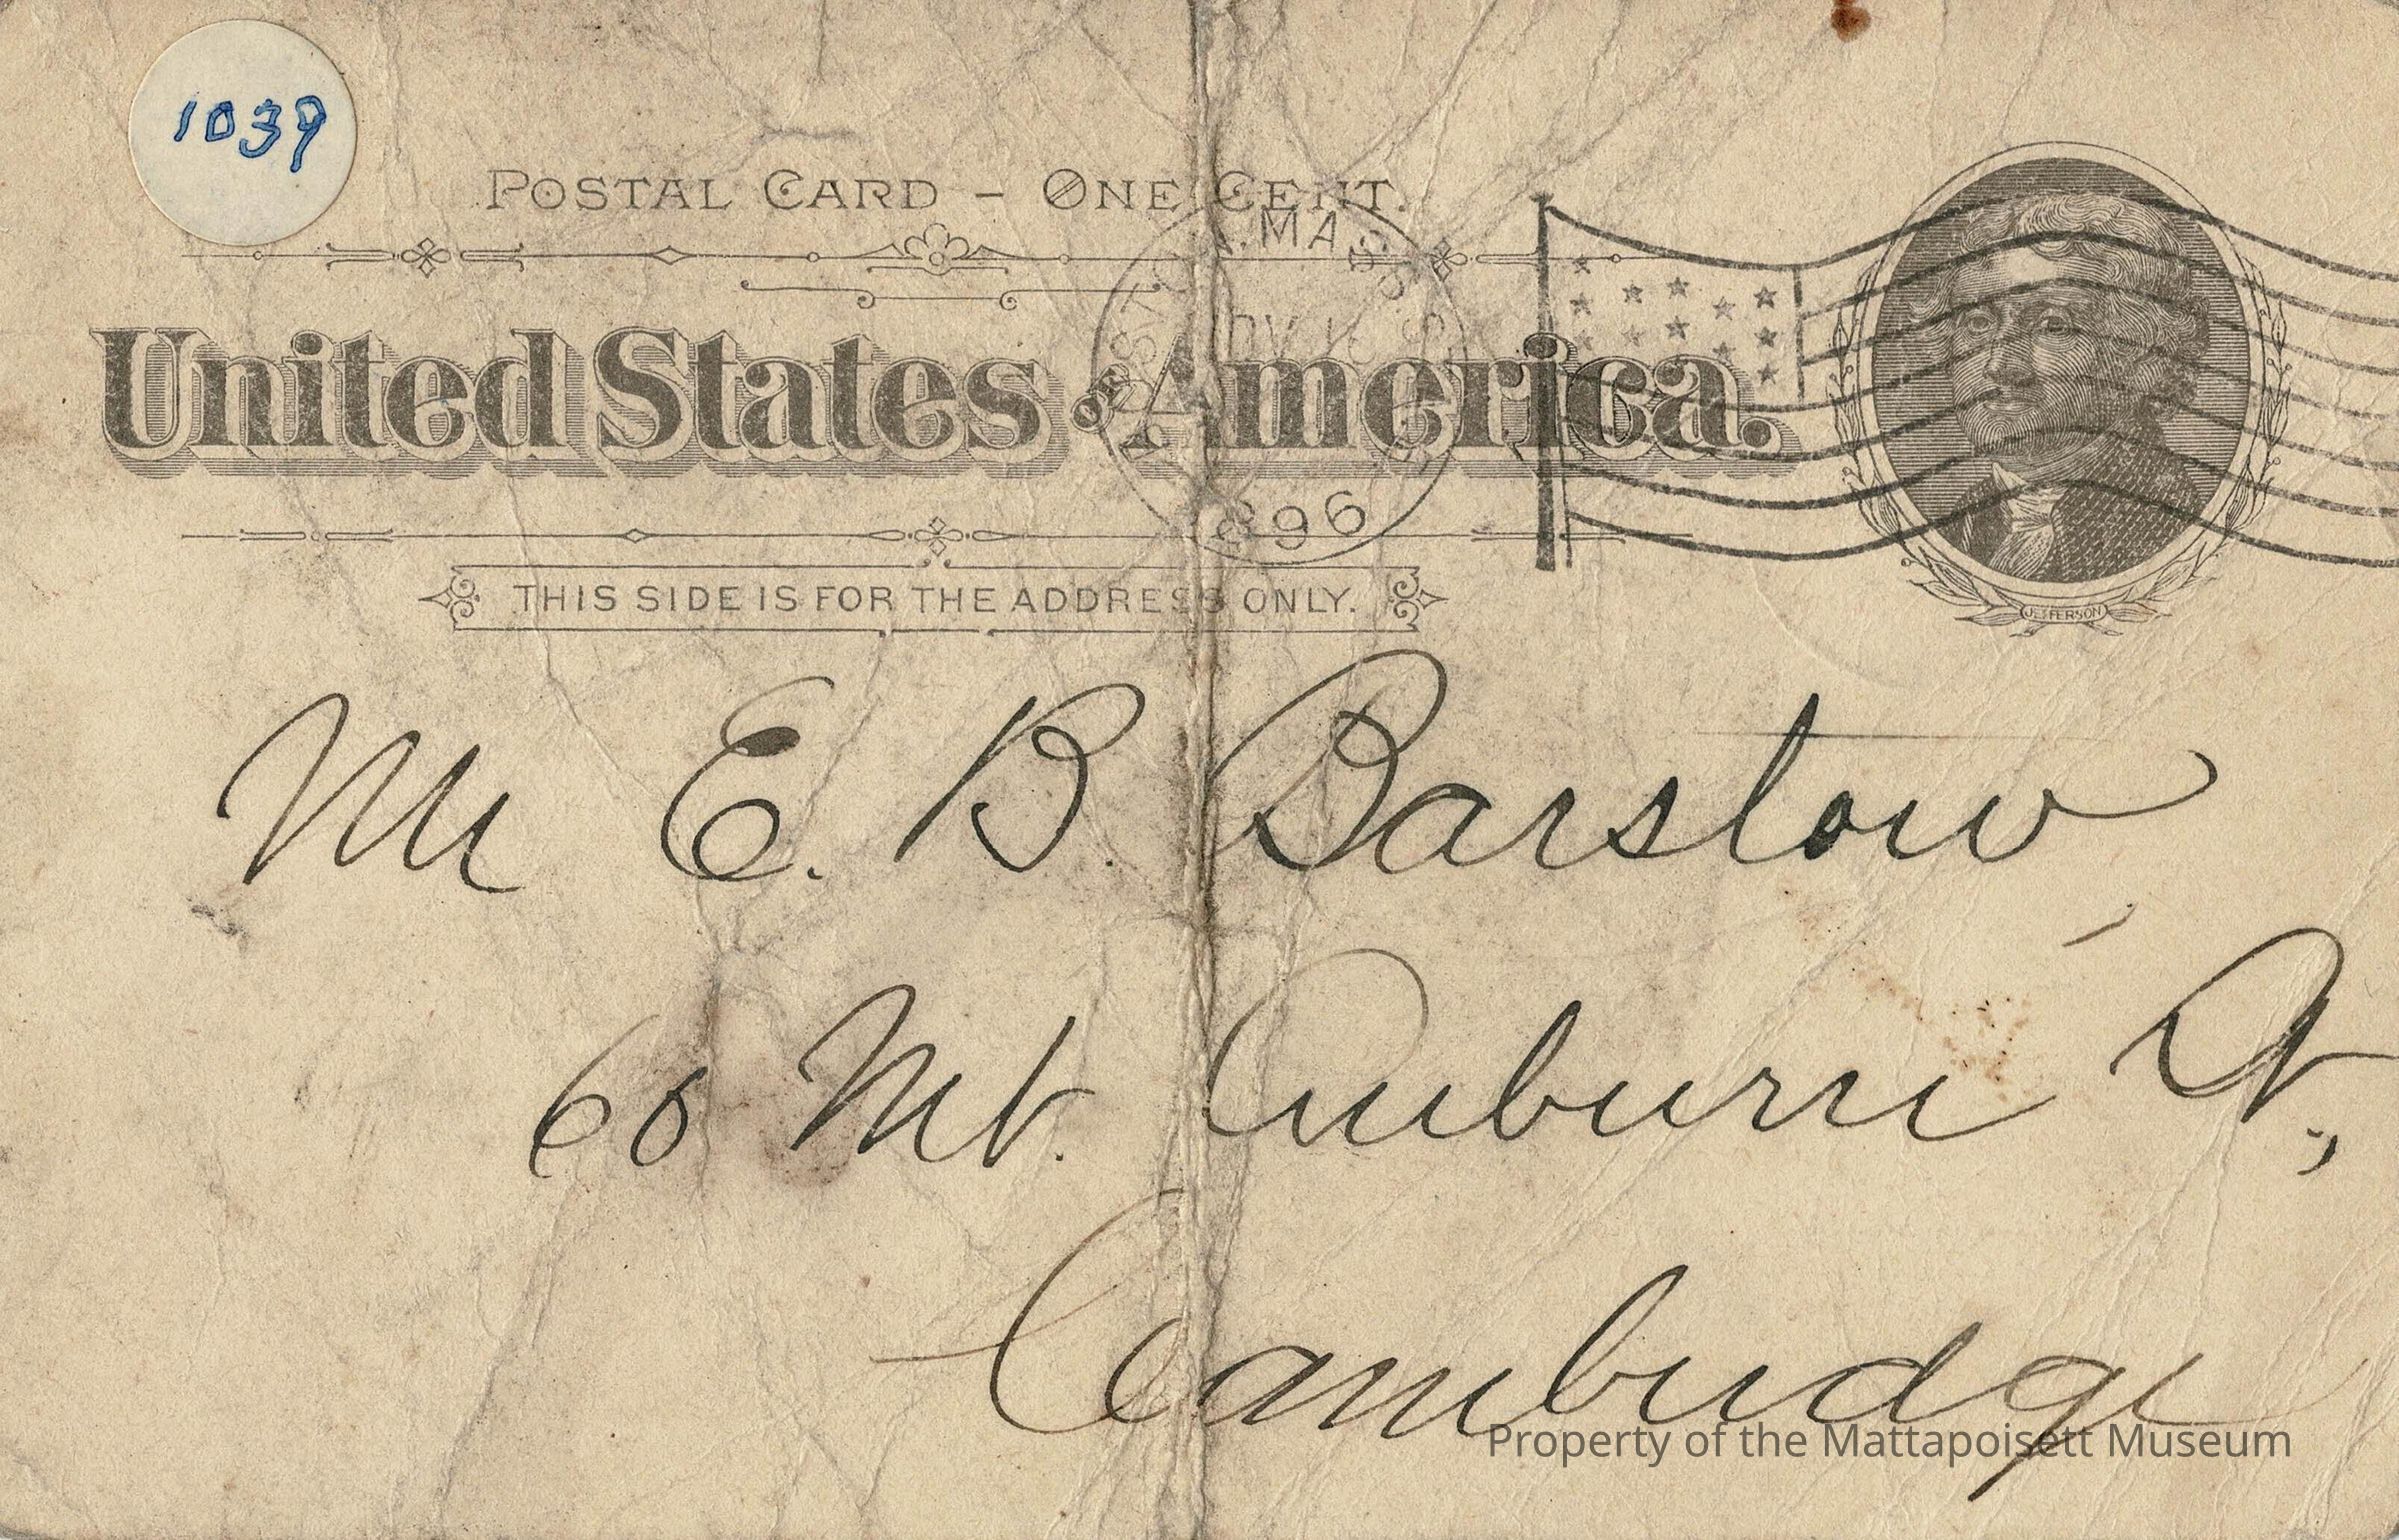 1039
POSTAL CARD – ONE CENT.
United States OF America.
MASS
NOV
1896
JEFFERSON
THIS SIDE IS FOR THE ADDRESS ONLY.
Mr E. B. Barstow
60 Mt. Auburn St.,
Cambridge
Property of the Mattapoisett Museum